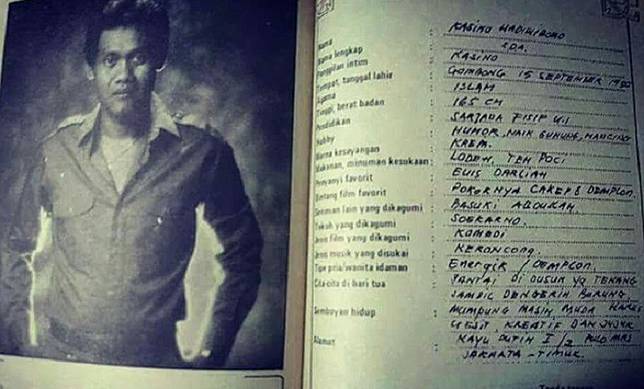 Nama : KASINO HADIWIBOWO
Nama lengkap : SDA.
Panggilan intim : KASINO
Tempat, tanggal lahir : GOMBONG 15 SEPTEMBER 1950
Agama : ISLAM
Tinggi, berat badan : 165 CM
Pendidikan : SARJANA FISIP UI
Hobby : HUMOR, NAIK GUNUNG, MANCING
Warna kesayangan : KREM.
Makanan, minuman kesukaan : LODEH, TEH POCI
Penyanyi favorit : EUIS DARLIAH
Bintang film favorit : POKOKNYA CAKEP & DEMPLON.
Seniman lain yang dikagumi : BASUKI ABDULLAH.
Tokoh yang dikagumi : SOEKARNO.
Jenis film yang dikagumi : KOMEDI
Jenis musik yang disukai : KERONCONG.
Tipe pria/wanita idaman : ENERGIK / DEMPLON.
Cita-cita di hari tua : SANTAI DI DUSUN YG TENANG
SAMBIL DENGERIN BURUNG
Semboyan hidup : MUMPUNG MASIH MUDA HARUS
GESIT, KREATIF DAN JUJUR
Alamat : KAYU PUTIH I / PULO MAS
JAKARTA - TIMUR.